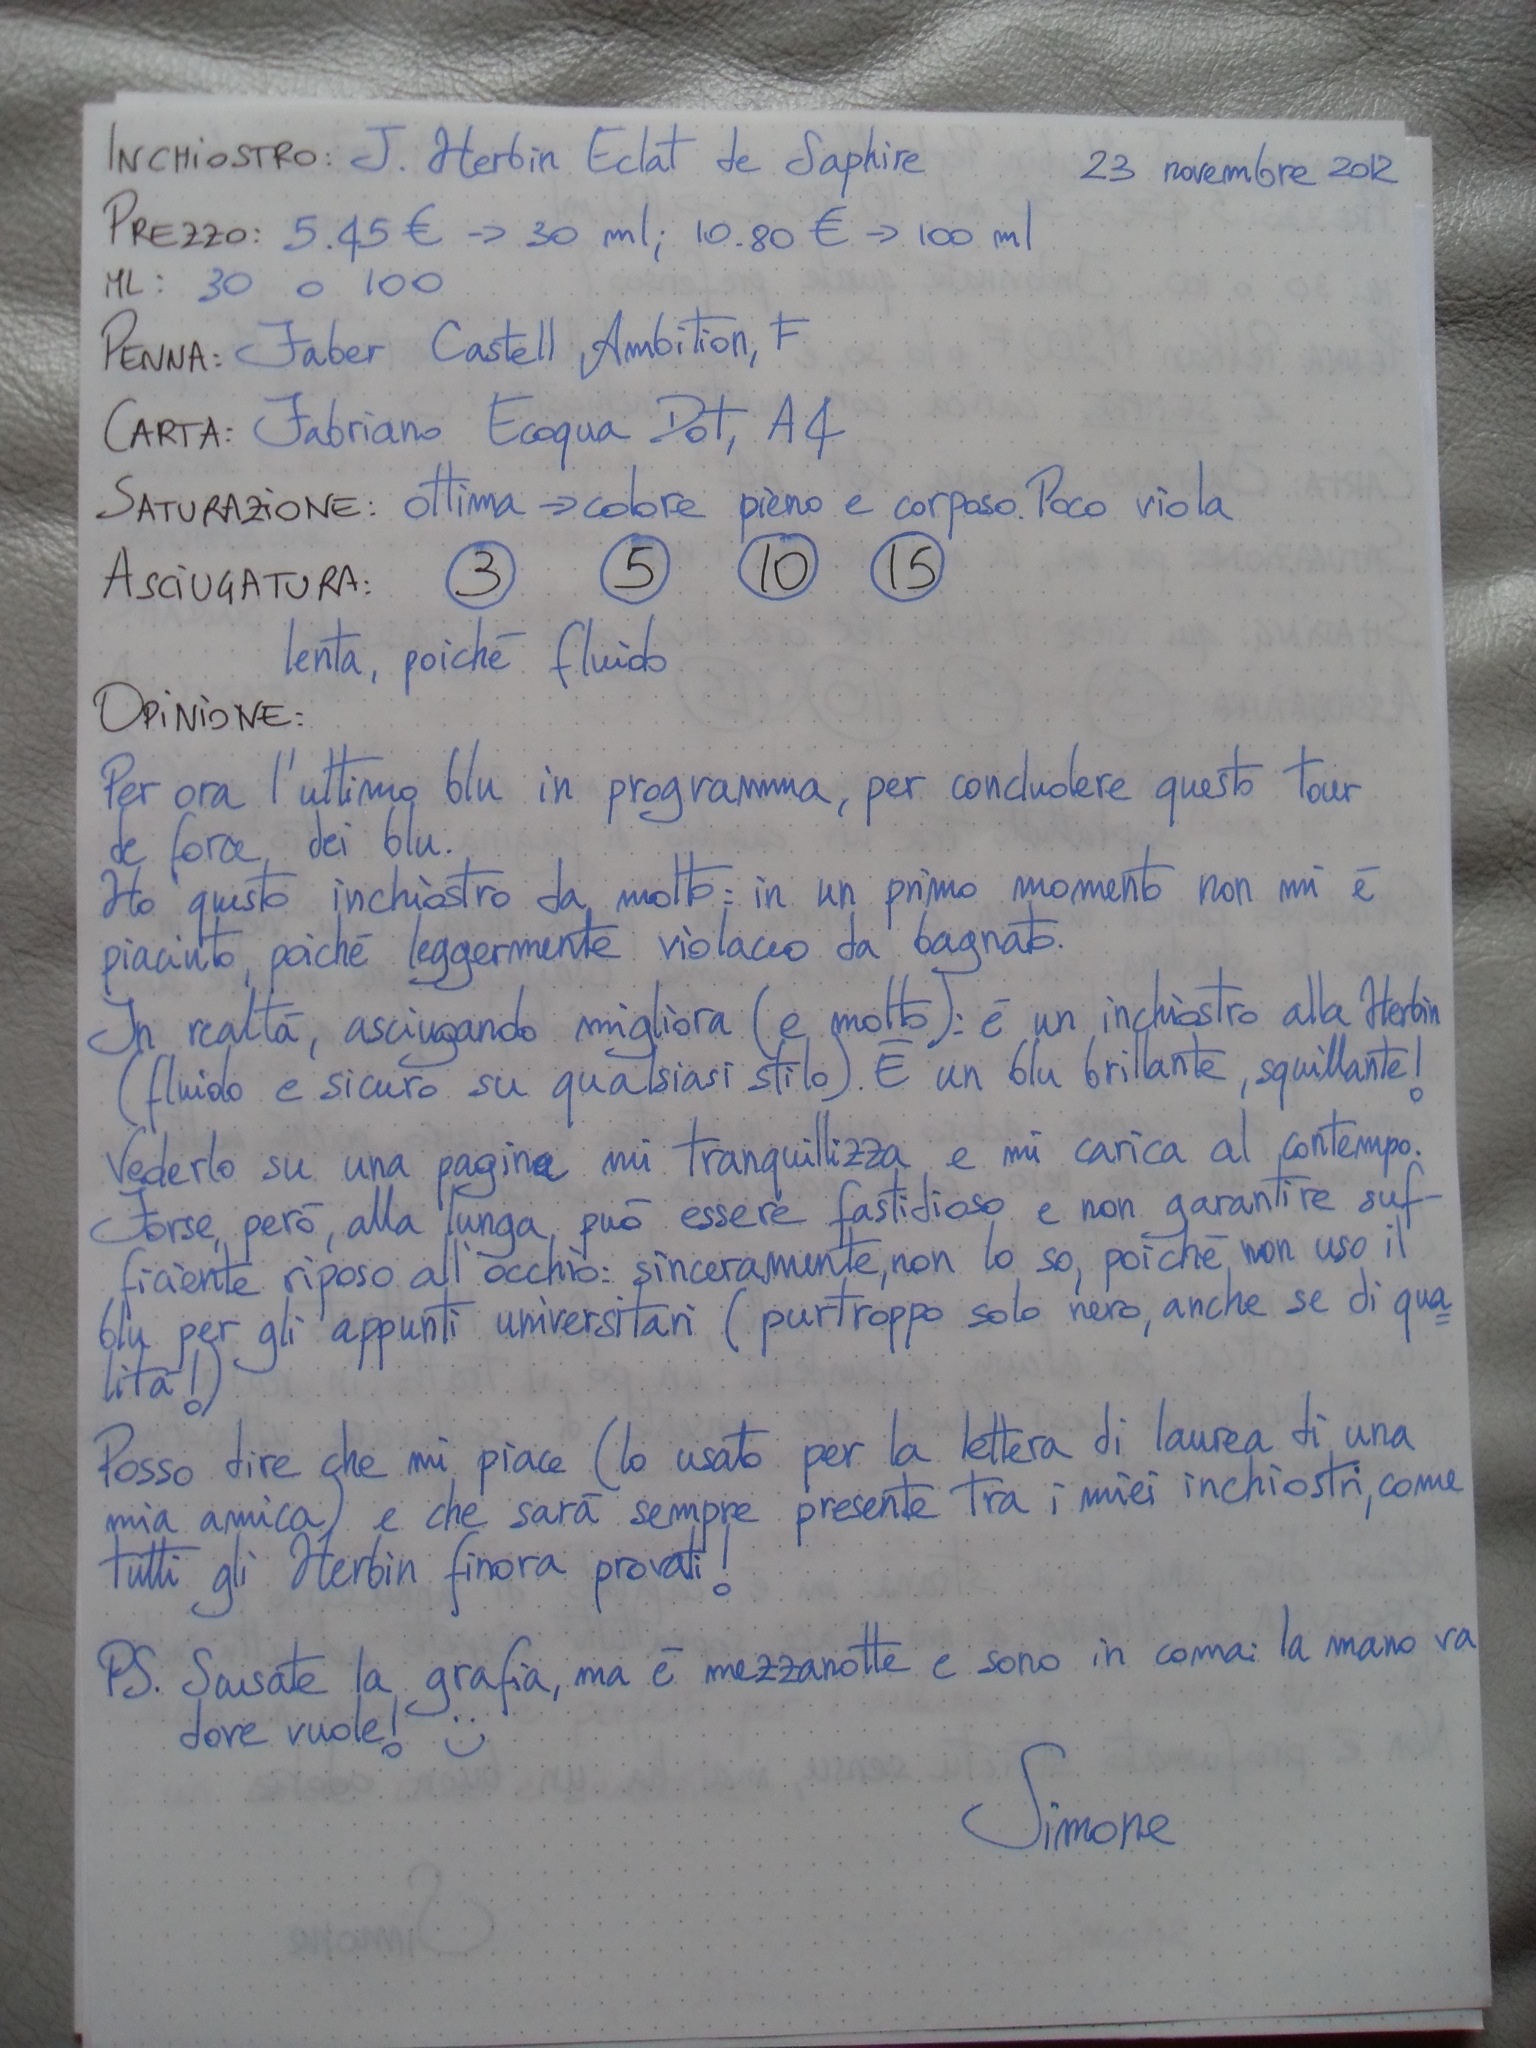 INCHIOSTRO: J. Herbin Eclat de Saphire 23 novembre 2012
PREZZO: 5.45 € → 30 ml; 10.80 € → 100 ml
ML: 30 o 100
PENNA: Faber Castell Ambition, F
CARTA: Fabriano Ecoqua Dot, A4
SATURAZIONE: ottima → colore pieno e corposo. Poco viola
ASCIUGATURA: 3 5 10 15
lenta, poiché fluido
OPINIONE:
Per ora l'ultimo blu in programma, per concludere questo tour
de force dei blu.
Ho questo inchiostro da molto: in un primo momento non mi è
piaciuto, poiché leggermente violaceo da bagnato.
In realtà, asciugando migliora (e molto): è un inchiostro alla Herbin
(fluido e sicuro su qualsiasi stilo). È un blu brillante, squillante!
Vederlo su una pagina mi tranquillizza e mi carica al contempo.
Forse, però, alla lunga può essere fastidioso e non garantire suf-
ficiente riposo all'occhio: sinceramente, non lo so, poiché non uso il
blu per gli appunti universitari (purtroppo solo nero, anche se di qua=
lità!)
Posso dire che mi piace (lo usato per la lettera di laurea di una
mia amica) e che sarà sempre presente tra i miei inchiostri, come
tutti gli Herbin finora provati!
PS. Scusate la grafia, ma è mezzanotte e sono in coma: la mano va
dove vuole! :)
Simone